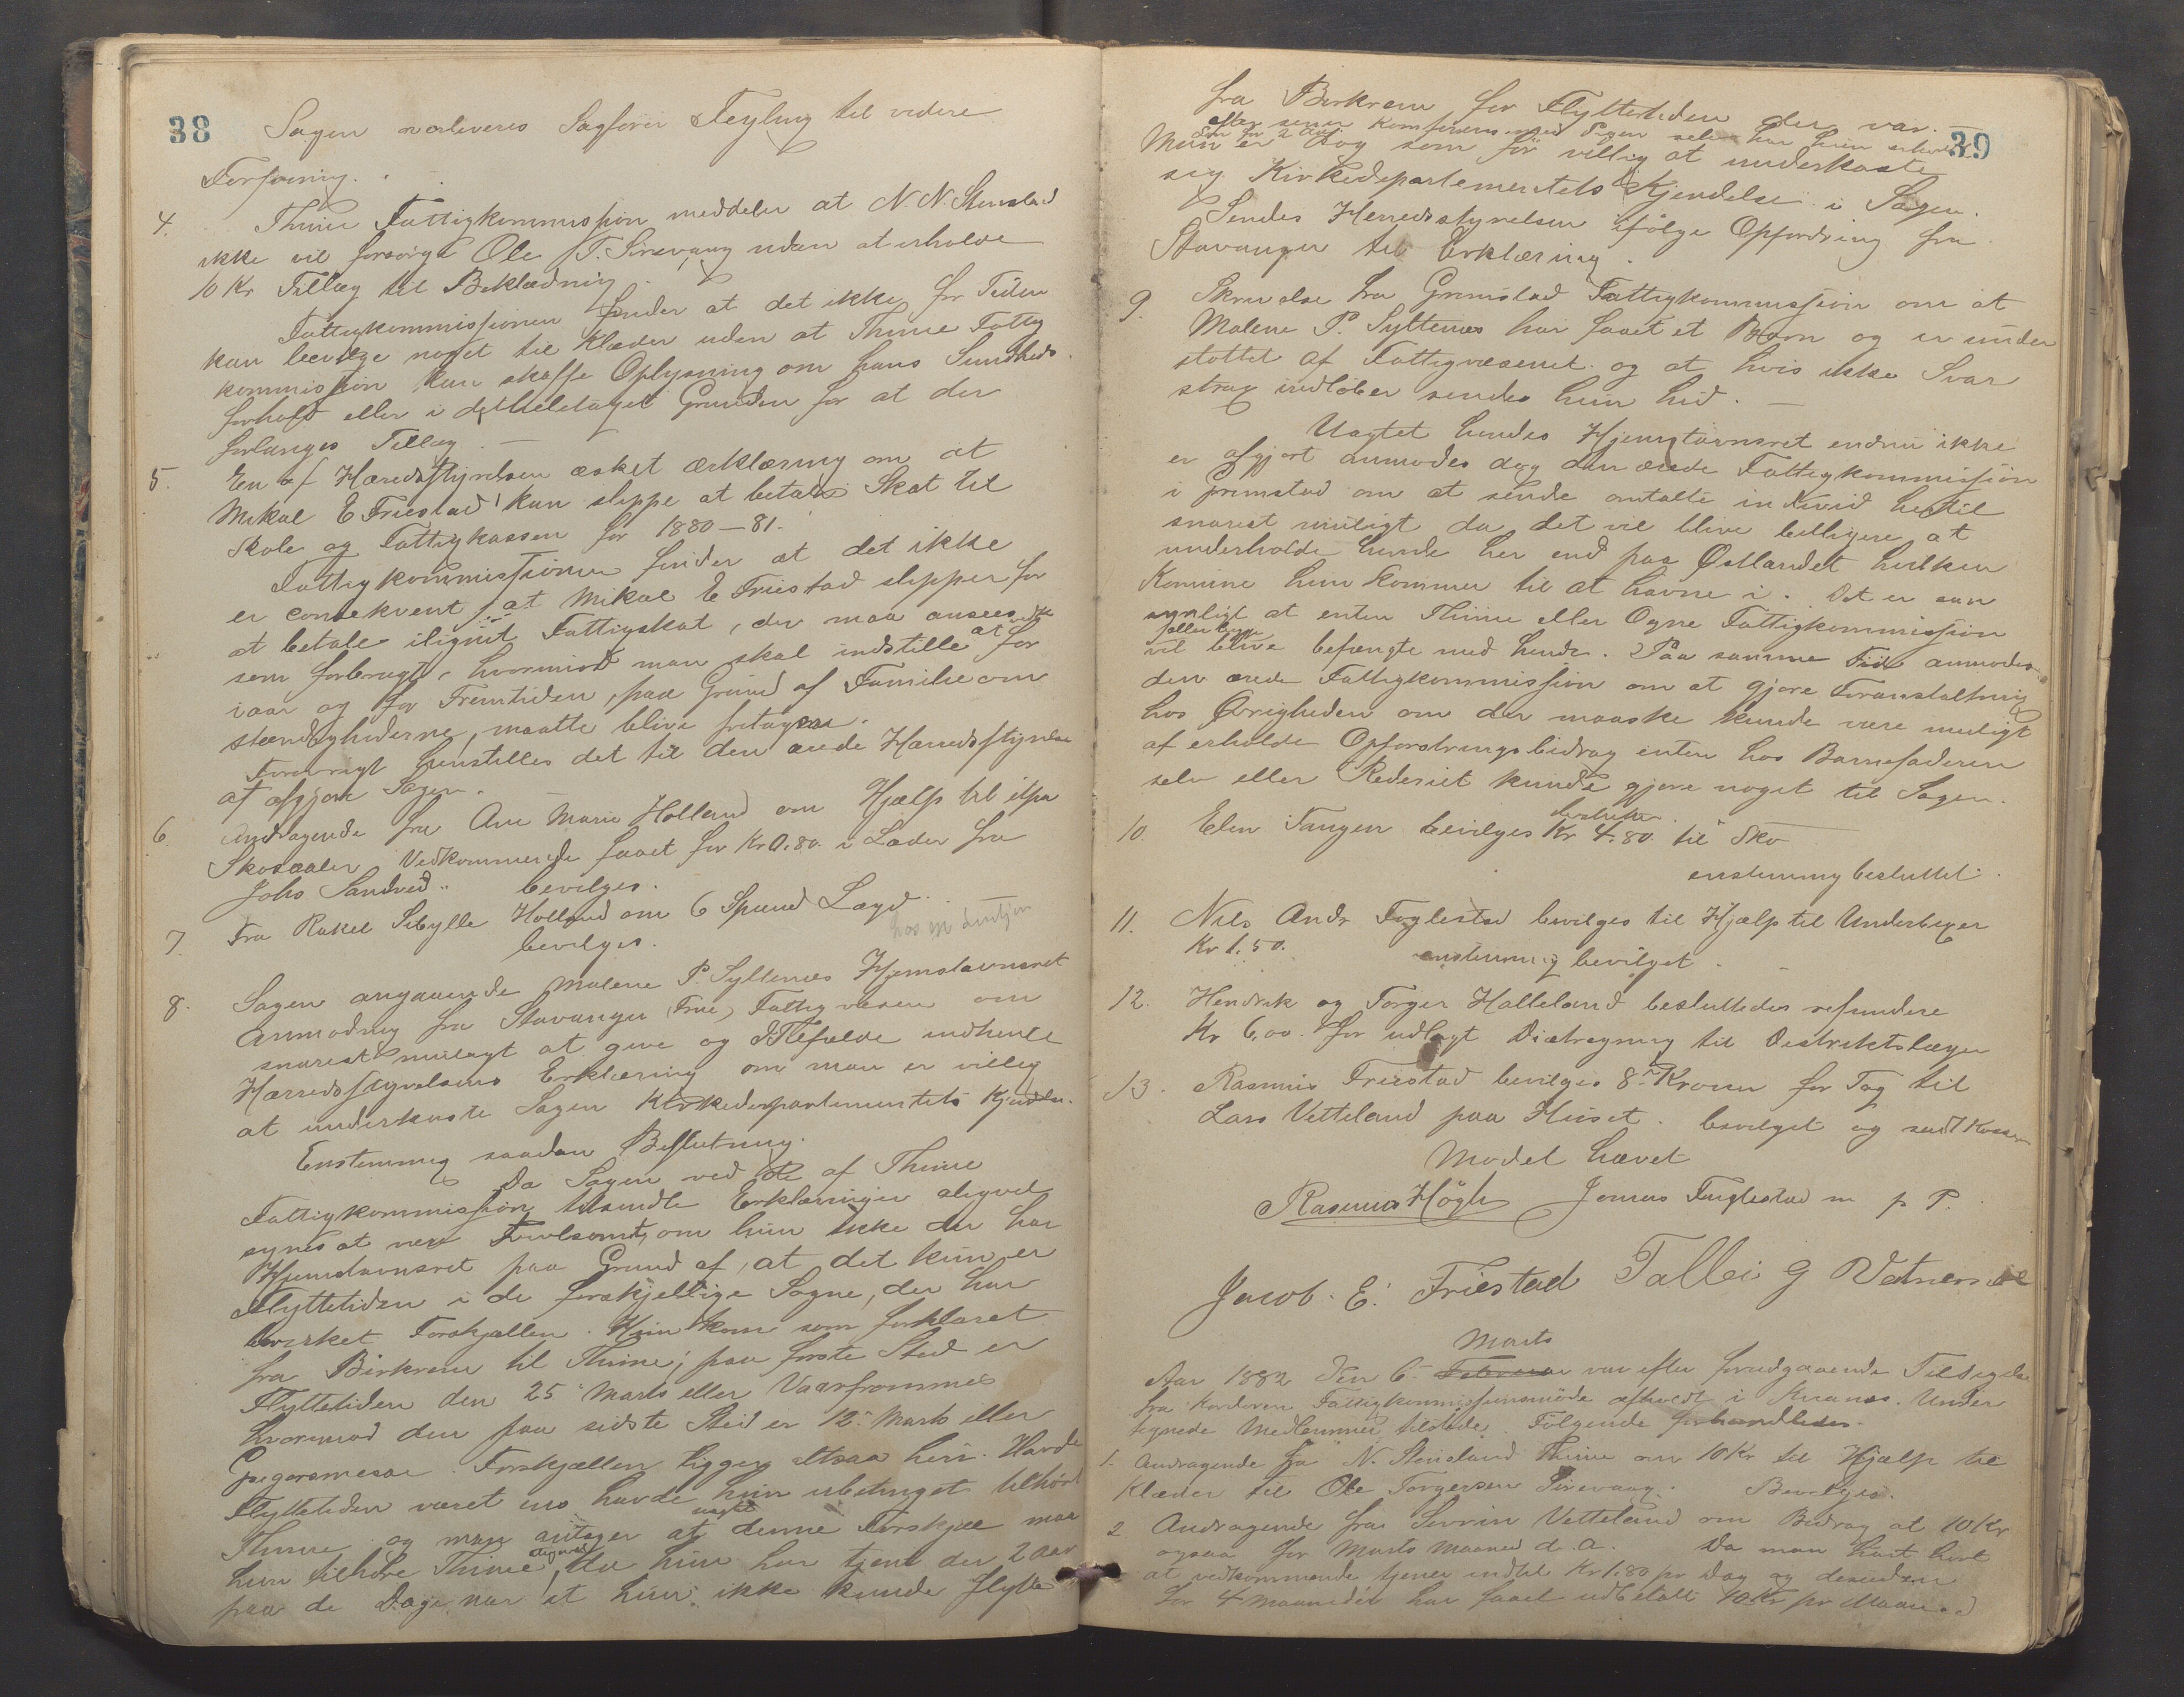 38
Sagen overleveres Sagfører Feyling til videre
Forføining.
4. Thime Fattigkommission meddeler at N. N. Stenslad
ikke vil forsørge Ole T. Sirevaag uden at erholde
10 Kr Tillæg til Beklædning.
Fattigkommissionen finder at det ikke for Tiden
kan bevilge noget til Klæder uden at Thime Fattig
kommission kan skaffe Oplysning om hans Sundheds
forhold eller i det heletaget Grunden for at der
forlanges Tillæg. —
5. En af Hæredsstyrelsen æsket Erklæring om at
Mikal E Friestad kan slippe at betale Skat til
Skole og Fattigkassen for 1880–81.
Fattigkommissionen finder at det ikke
er consekvent, at Mikal E Friestad slipper for
at betale ilignet Fattigskat, der maa ansees
som forbrugt, hvorimod man skal indstille at for
iaar og for Fremtiden, paa Grund af Familieom
stændighederne, maatte blive fritagen.
Forøvrigt henstilles det til den ærede Hærredsstyrelse
at afgjøre Sagen.
6 Andragende fra Ane Marie Holland om Hjælp til et par
Skosaaler. Vedkommende faaet for Kr 0.80. i Læder fra
Johs Sandved. bevilges.
7. Fra Rakel Sibylle Holland om 6 Spund Lagd.
bevilges.
8. Sagen angaaende Malene P. Syltenæs Hjemstavnsret
Anmodning fra Stavanger (Frue) Fattigvæsen om
snarest muligt at give og Tilfælde indhente
Hærredsstyrelsens Erklæring om man er villig
at underkaste Sagen Kirkedepartementets Kjendelse.
Enstemmig saadan Beslutning.
Da Sagen ved de af Thime
Fattigkommission tilsendte Erklæringer aligvel
synes at være Tvivlsomt, om hun ikke der har
Hjemstavnsret paa Grund af, at det kun er
Flyttetiden i de forskjellige Sogne, der har
bevirket Forskjellen. Hun kom som forklaret
fra Birkrem til Thime; paa første Sted er
Flyttetiden den 25 Marts eller Vaarfrommes
hvorimod den paa sidste Sted er 12. Marts eller
Gregorsmesse. Forskjellen ligger altsaa heri. Havde
Flyttetiden været ens havde hun ubetinget tilhørt
Thime og man antager at uagtet denne Forskjel maa
hun tilhøre Thime aligevel, da hun har tjent der 2 Aar
paa de Dage nær at hun ikke kunde flytte
39
fra Birkrem før Flyttetiden der var.
Man er dog som før villig at underkaste
sig Kirkedepartementets Kjendelse i Sagen.
Sendes Herredsstyrelsen ifølge Opfordring fra
Stavanger til Erklæring.
9. Skrivelse fra Grimstad Fattigkommission om at
Malene P. Syltenæs har faaet et Barn og er under
støttet af Fattigvæsenet. og at hvis ikke Svar
strax indløber sendes hun hid. —
Uagtet hendes Hjemstavnsret endnu ikke
er afgjort anmodes dog den ærede Fattigkommission
i Grimstad om at sende omtalte individ hertil
snarest muligt da det vil blive billigere at
underholde hende her end paa Østlandet hvilken
Komune hun kommer til at havne i. Det er san
synligt at enten Thime eller Ogne Fattigkommission
vil blive befængte med hende. Paa samme Tid anmodes
den ærede Fattigkommission om at gjøre Foranstaltning
hos Øvrigheden om der maaske kunde være muligt
at erholde Opfostringsbidrag enten hos Barnefaderen
selv eller Rederiet kunde gjøre noget til Sagen.
10. Elen Tangen bevilges Kr 4.80 til Sko
enstemmig besluttet.
11. Nils Andr Foglestad bevilges til Hjælp til Underbuxer
Kr 1.50. enstemmig bevilget.
12. Hendrik og Torger Halleland besluttedes refundere
Kr 6,00. for udlagt Diætregning til Distriktslægen
13. Rasmus Friestad bevilges 8 Kroner for Tag til
Lars Vetteland paa Huset. bevilget og
Mødet hævet
Rasmus Högh Jonas Fuglestad m p P.
Jacob. E. Friestad Tallei G Vatnemo
Marts
Aar 1882 den 6. Februar var efter foredgaaende Tilsigelse
fra Formanden Fattigkommissionsmøde afholdt i Kvanes. Under
tegnede Medlemmer tilstede. Følgende forhandledes.
1. Andragende fra N. Steneland Thime om 10 Kr til Hjælp til
Klæder til Ole Torgersen Sirevaag. Bevilges.
2 Andragende fra Sivrin Vetteland om Bidrag at 10 Kr
ogsaa for Marts Maaned d. A. Da man har hørt
at vedkommende tjener indtil Kr 1.80 pr Dag og desuden
for 4 Maaneder har faaet udbetalt 10 Kr pr Maaned